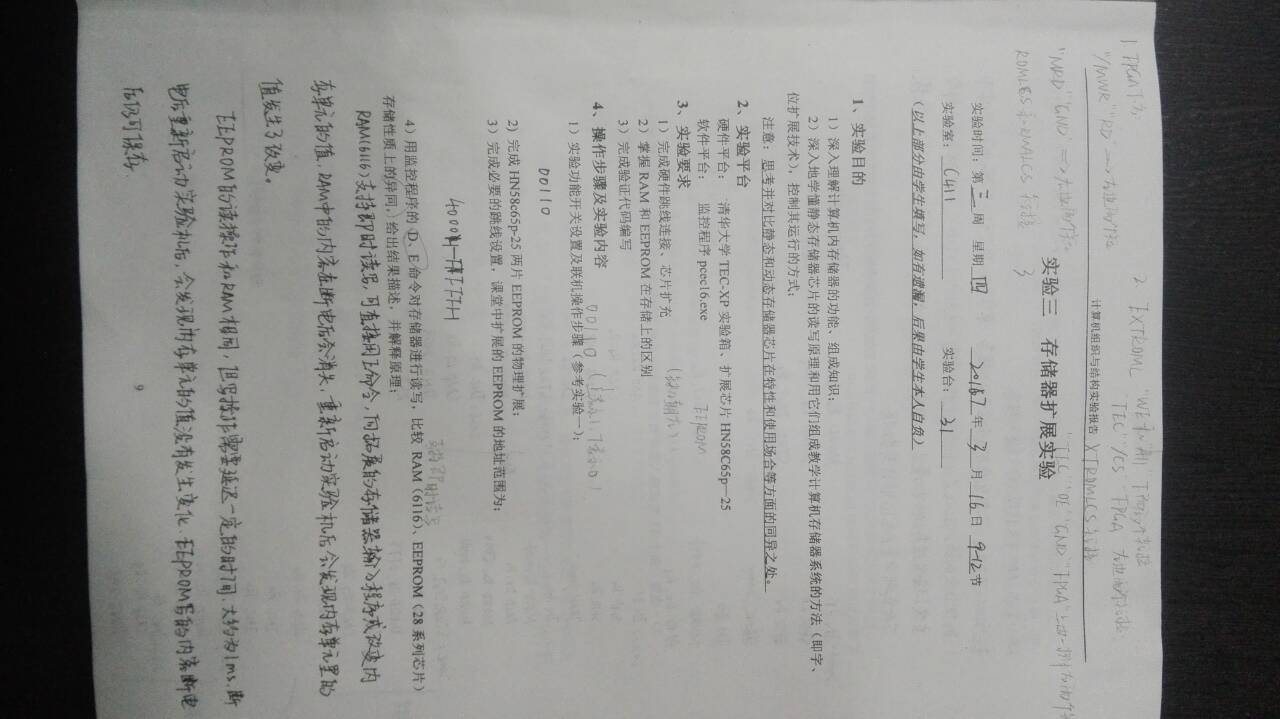 1. FPGA下方
2. EXTROML "WE和"A11"下的
"/MWR""RD" => 左边两个
"TEC""/CS" "FPGA 左边
计算机组织与结构实验报告
XTROMLCS 短接
"MRD""GND" => 左边两个
"TEC""OE""GND""FPGA"上面一排
实验三 存储器扩展实验
ROMLCS和RMALCS短接
3
实验时间：第三周 星期四 2017年3月16日9-12节
实验室：C411 实验台：31
（以上部分由学生填写，如有遗漏，后果由学生本人自负）
1、实验目的
1）深入理解计算机内存储器的功能、组成知识；
2）深入地学懂静态存储器芯片的读写原理和用它们组成教学计算机存储器系统的方法（即字、
位扩展技术），控制其运行的方式；
注意：思考并对比静态和动态存储器芯片在特性和使用场合等方面的同异之处。
2、实验平台
硬件平台： 清华大学 TEC-XP 实验箱、扩展芯片 HN58C65p—25
软件平台： 监控程序 pcec16.exe
EEPROM
3、实验要求
（缺口朝左）
1）完成硬件跳线连接、芯片扩充
2）掌握 RAM 和 EEPROM 在存储上的区别
3）完成验证代码编写
4、操作步骤及实验内容
00110（上表示1,下表示0）
1）实验功能开关设置及联机操作步骤（参考实验一）；
00110
2）完成 HN58c65p-25 两片 EEPROM 的物理扩展；
3）完成必要的跳线设置，课堂中扩展的 EEPROM 的地址范围为；
支持即时读写
4）用监控程序的 D、E 命令对存储器进行读写，比较 RAM（6116）、EEPROM（28 系列芯片）
存储性质上的异同，给出结果描述，并解释原理；
RAM(6116)支持即时读写,可直接用E命令,向拓展的存储器输入程序或改变内
存单元的值,RAM中的内容在断电后会消失,重新启动实验机后会发现内存单元里的
值发生了改变。
EEPROM的读操作和RAM相同,但写操作需要延迟一定的时间.大约为1ms.断
电后重新启动实验机后,会发现内存单元的值没有发生变化.EEPROM写的内容断电
后仍可保存.
9